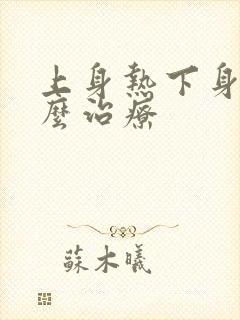 上身熱下身
麼治療
蘇木曦